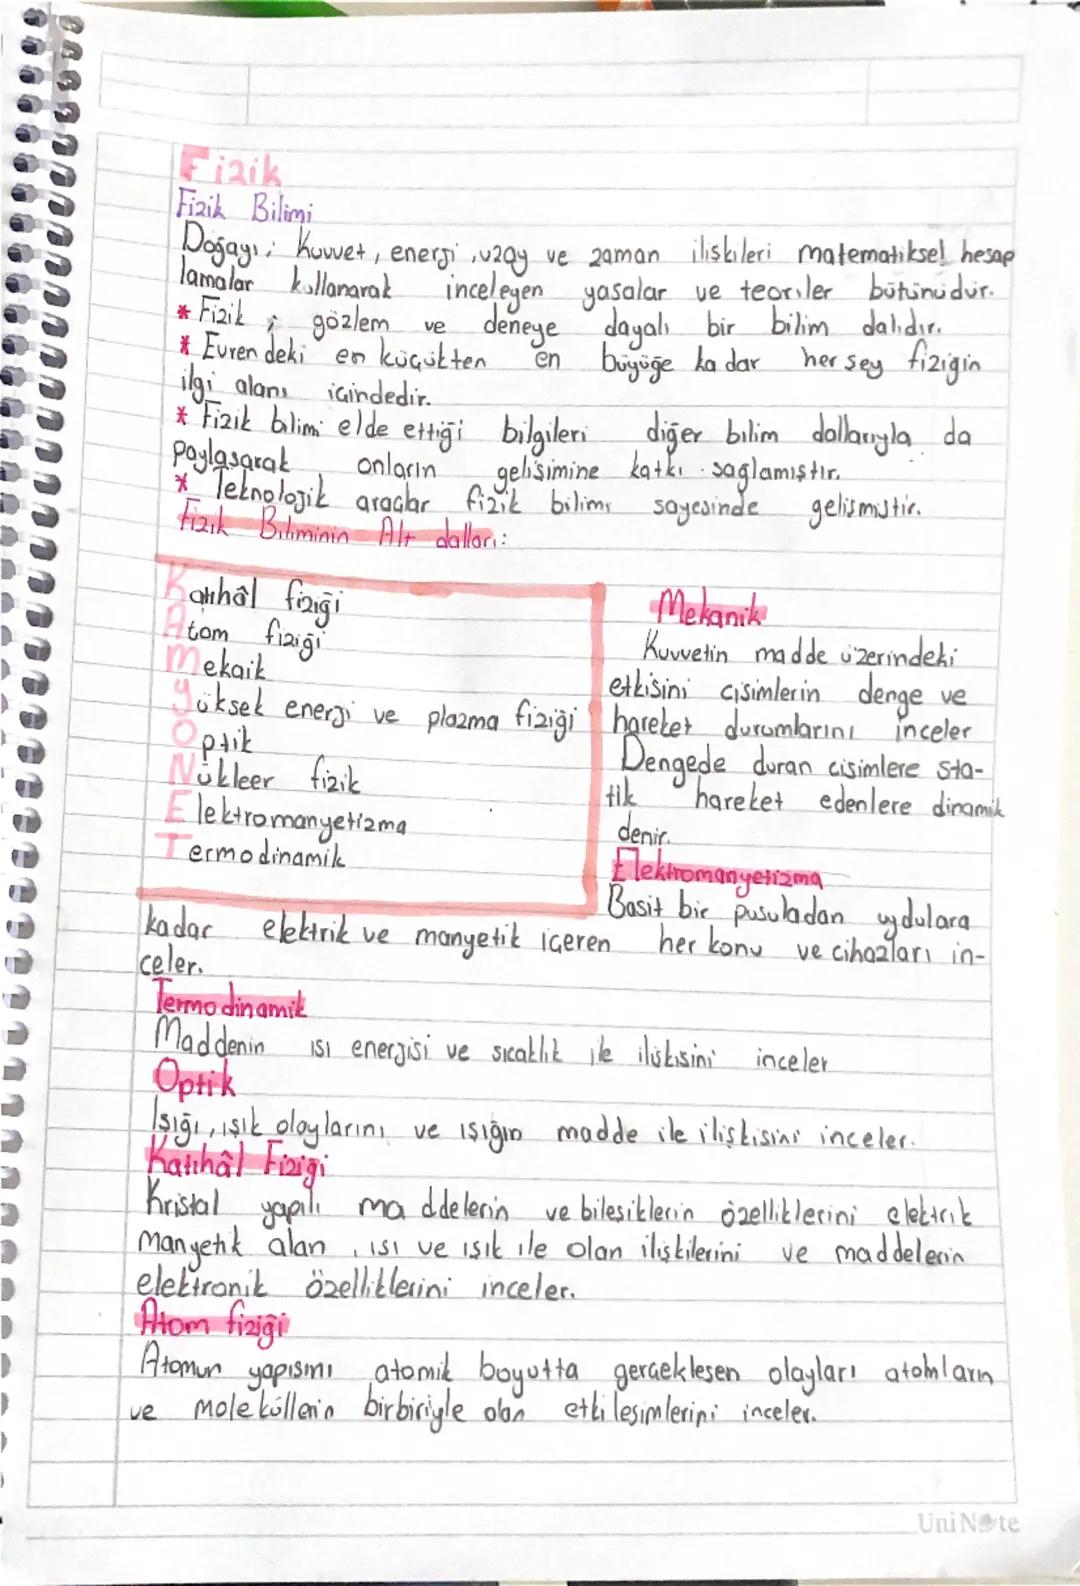 Fizik
Fizik Bilimi
Doğayı; kuvvet, enerji, uzay ve zaman ilişkileri matematiksel hesap
lamalar kullanarak inceleyen yasalar ve teoriler bütünüdür.
* Fizik ; gözlem ve deneye dayalı bir bilim dalıdır.
* Evrendeki en küçükten en büyüğe kadar her şey fiziğin
ilgi alanı içindedir.
* Fizik bilimi elde ettiği bilgileri diğer bilim dallarıyla da
paylaşarak onların gelişimine katkı sağlamıştır.
* Teknolojik araçlar fizik bilimi sayesinde gelişmiştir.
Fizik Biliminin Alt dalları:
Katıhâl fiziği
Atom fiziği
Mekaik
Yüksek enerji ve plazma fiziği
Optik
Nükleer fizik
Elektromanyetizma
Termodinamik
Mekanik
Kuvvetin madde üzerindeki
etkisini cisimlerin denge ve
hareket durumlarını inceler
Dengede duran cisimlere sta-
tik hareket edenlere dinamik
denir.
Elektromanyetizma
Basit bir pusuladan uydulara
kadar elektrik ve manyetik içeren her konu ve cihazları in-
celer.
Termodinamik
Maddenin ısı enerjisi ve sıcaklık ile ilişkisini inceler
Optik
Işığı, ışık olaylarını ve ışığın madde ile ilişkisini inceler.
Katıhâl Fiziği
Kristal yapılı maddelerin ve bileşiklerin özelliklerini elektrik
manyetik alan, ısı ve ışık ile olan ilişkilerini ve maddelerin
elektronik özelliklerini inceler.
Atom fiziği
Atomun yapısını atomik boyutta gerçekleşen olayları atomların
ve moleküllerin birbiriyle olan etkileşimlerini inceler.
UniNote